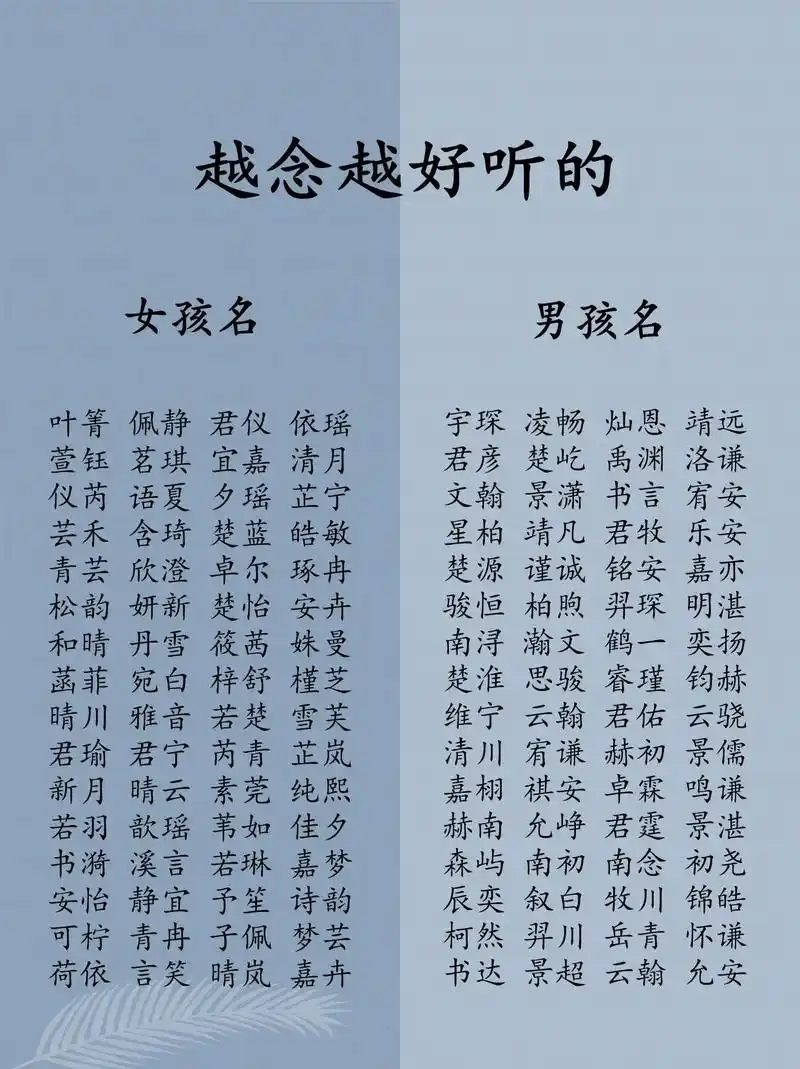 越念越好听的
女孩名
叶箐 佩静 君仪 依瑶
萱钰 茗琪 宜嘉 清月
仪芮 语夏 夕瑶 芷宁
芸禾 含琦 楚蓝 皓敏
青芸 欣澄 卓尔 琢冉
松韵 妍新 楚怡 安卉
和晴 丹雪 筱茜 姝曼
菡菲 宛白 梓舒 槿芝
晴川 雅音 若楚 雪芙
君瑜 君宁 芮青 芷岚
新月 晴云 素莞 纯熙
若羽 歆瑶 苇如 佳夕
书漪 溪言 若琳 嘉梦
安怡 静宜 予笙 诗韵
可柠 青冉 子佩 梦芸
荷依 言笑 晴岚 嘉卉
男孩名
宇琛 凌畅 灿恩 靖远
君彦 楚屹 禹渊 洛谦
文翰 景潇 书言 宥安
星柏 靖凡 君牧 乐安
楚源 谨诚 铭安 嘉亦
骏恒 柏煦 羿琛 明湛
南浔 瀚文 鹤一 奕扬
楚淮 思骏 睿瑾 钧赫
维宁 云翰 君佑 云骁
清川 宥谦 赫初 景儒
嘉栩 祺安 卓霖 鸣谦
赫南 允峥 君霆 景湛
森屿 南初 南念 初尧
辰奕 叙白 牧川 锦皓
柯然 羿川 岳青 怀谦
书达 景超 云翰 允安